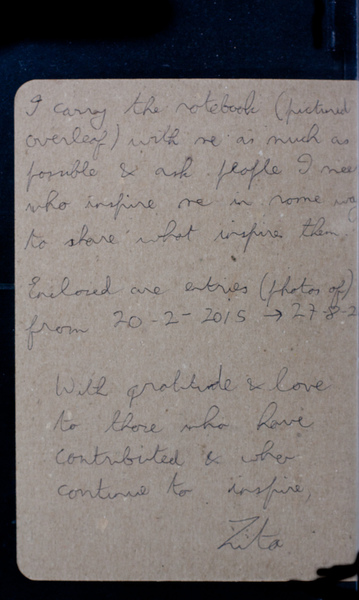 I carry the notebook (pictured
overleaf) with me as much as
possible & ask people I mee
who inspire me in some
to share what inspires them.
Enclosed are entries (photos of)
from 20-2-2015 → 27-8-2
With gratitude & love
to those who have
contributed & who
continue to inspire,
Zita